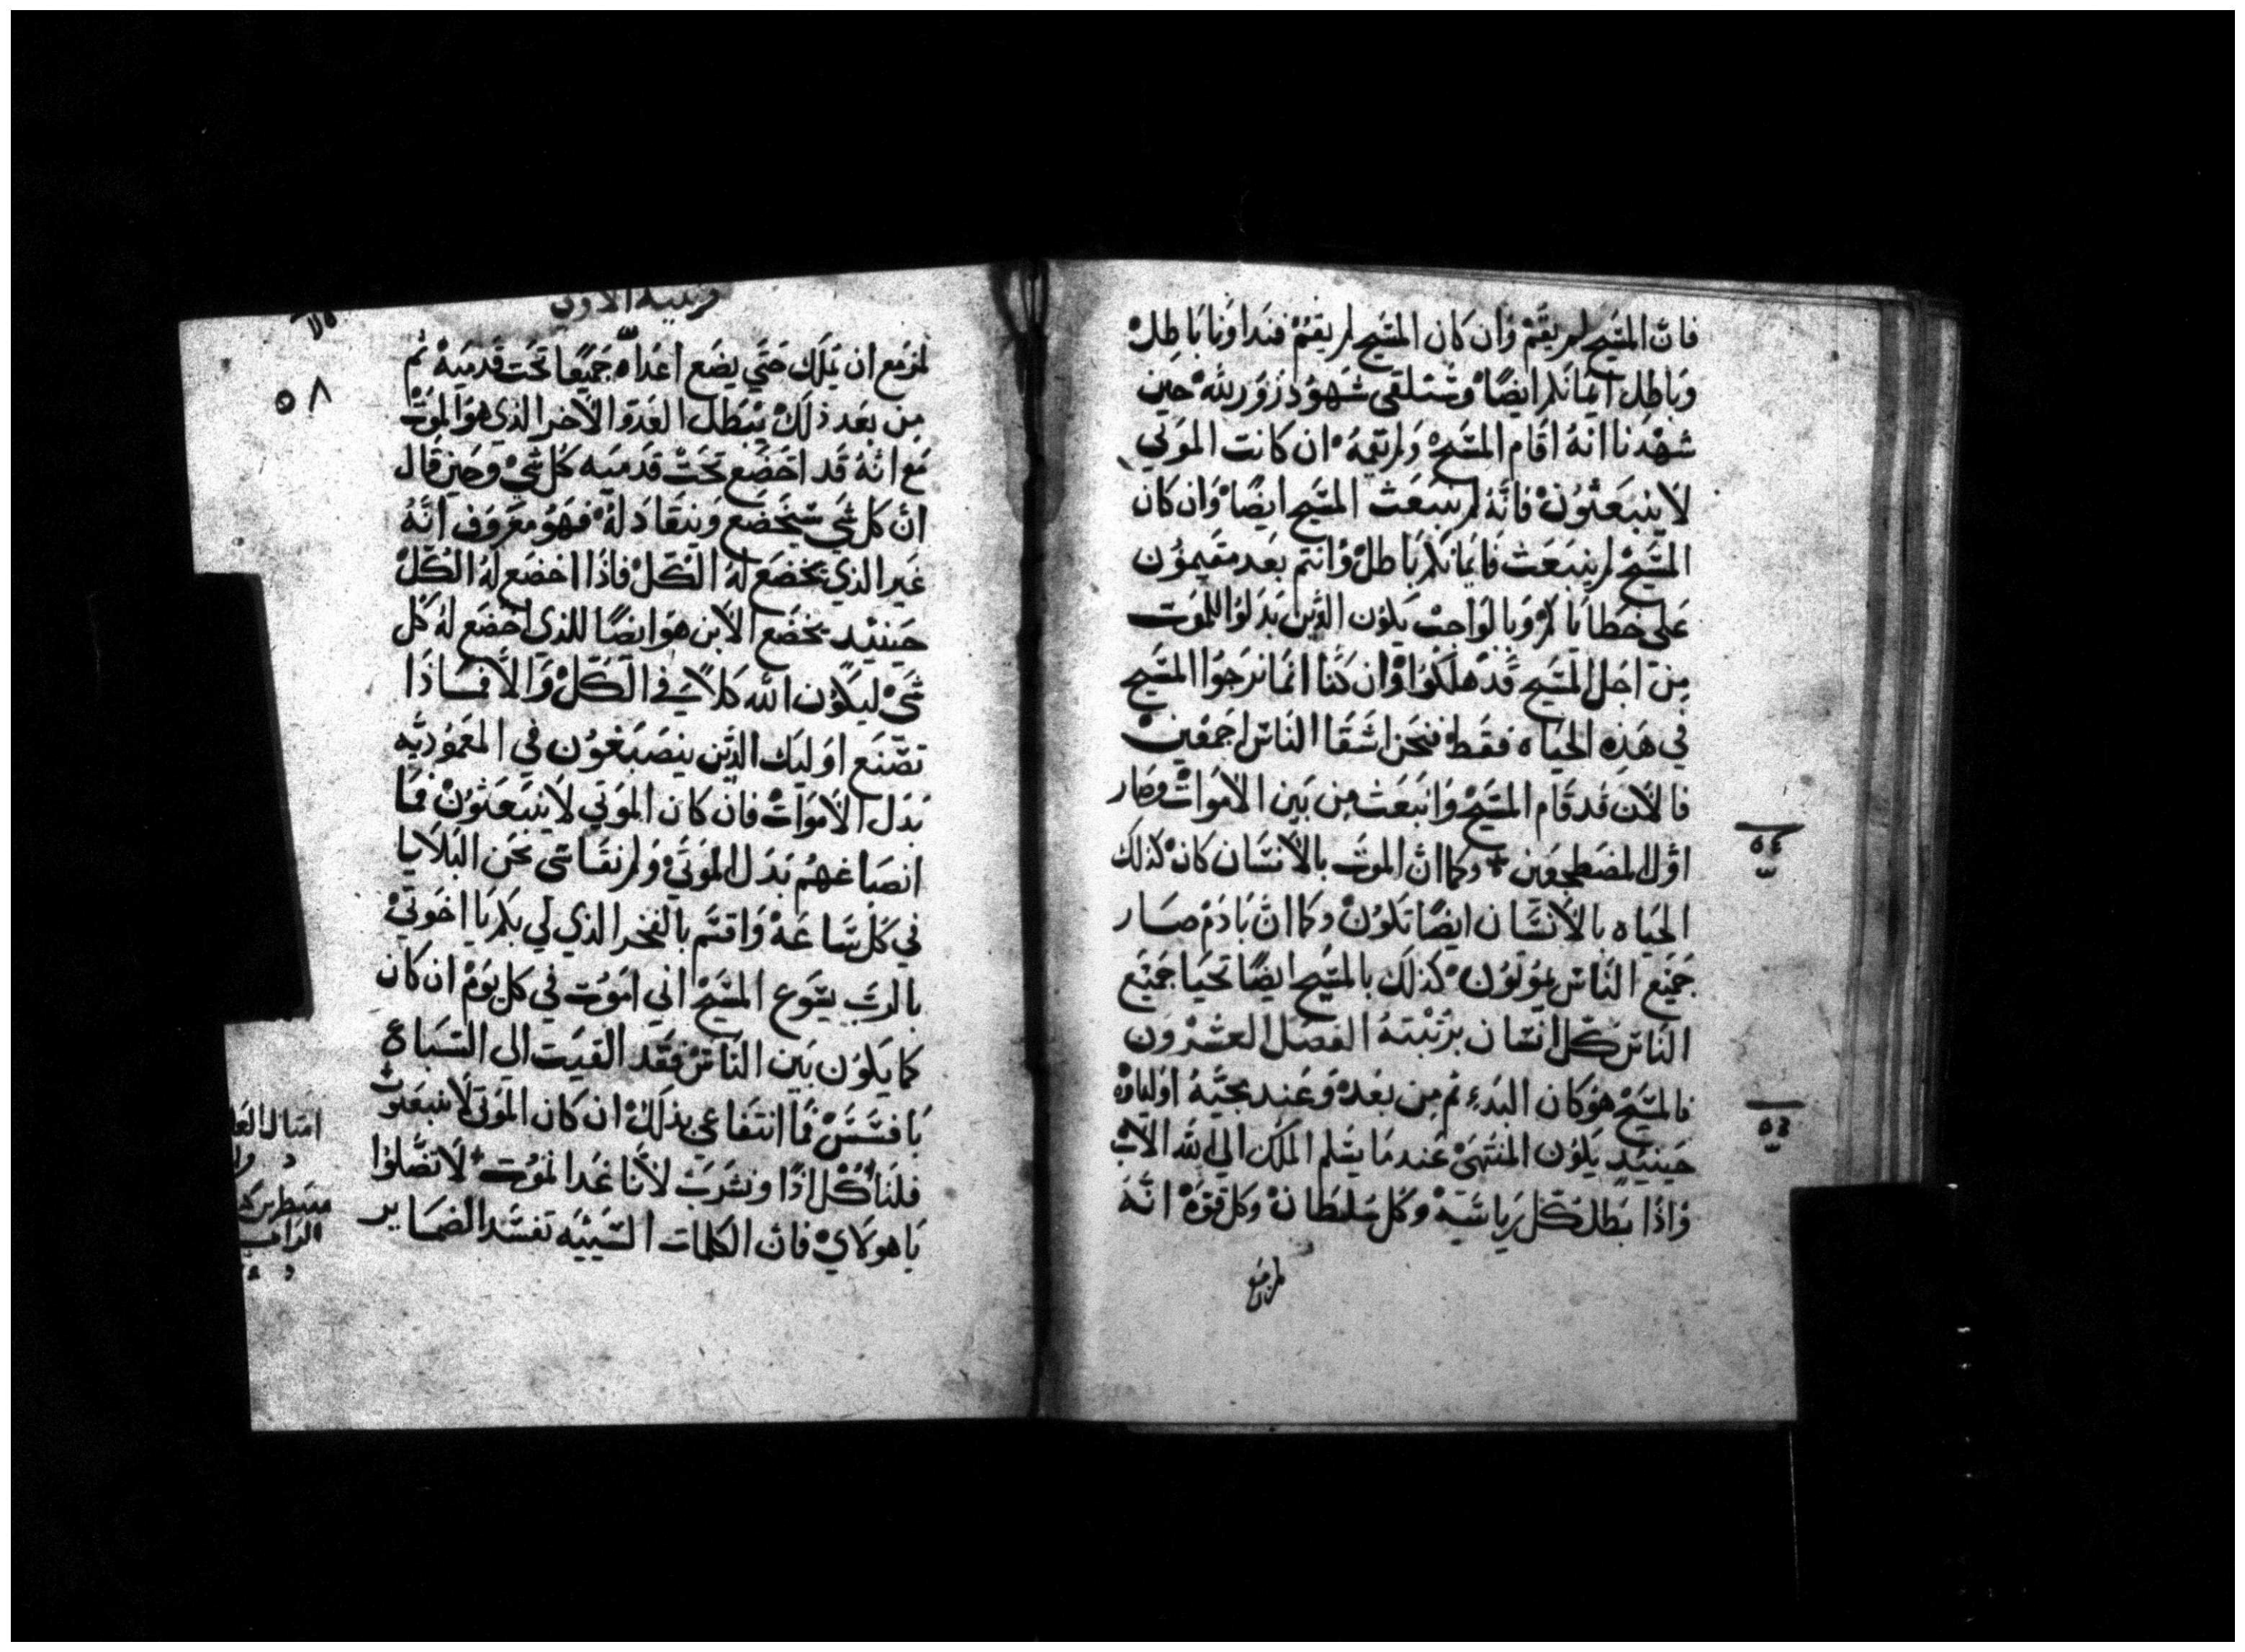 فان المسيح لم يقم وان كان المسيح لم يقم فنداونا باطل
وباطل ايمانكم ايضًا وسنلقى شهود زور لله حين
شهدنا انه اقام المسيح ولم يقمه ان كانت الموتي
لا ينبعثون فانه لم ينبعث المسيح ايضًا وان كان
المسيح لم ينبعث فايمانكم باطل وانتم بعد مقيمون
على خطاياكم وبالواجب يكون الذين بدلوا للموت
من اجل المسيح قد هلكوا وان كنا انما نرجوا المسيح
في هذه الحياه فقط فنحن اشقا الناس اجمعين
فالان قد قام المسيح وانبعث من بين الاموات وصار
اول المضطجعين وكما ان الموت بالانسان كان كذلك
الحياه بالانسان ايضًا تكون وكما ان بادم صار
جميع الناس يموتون كذلك بالمسيح ايضًا تحيا جميع
الناس كل انسان برتبته الفصل العشرون
فالمسيح هو كان البدء ثم من بعده وعند مجيه اولياوه
حينيد يكون المنتهى عندما يسلم الملك الي الله الاب
واذا بطل كل رياسيه وكل سلطان وكل قوه انه
لمزمع
قرنتيه الاولى
٥٨
لمزمع ان يملك حتي يضع اعداه جميعًا تحت قدميه ثم
من بعد ذلك يبطل العدو الاخر الذي هو الموت
مع انه قد اخضع تحت قدميه كل شي وحين قال
ان كل شي سيخضع وينقاد له فهو معروف انه
غير الذي يخضع له الكل فاذا اخضع له الكل
حينيد يخضع الابن هو ايضًا للذي اخضع له كل
شي ليكون الله كلاً في الكل والا فماذا
تصنع اوليك الذين ينصبغون في المعموديه
بدل الاموات فان كان الموتي لا ينبعثون فما
انصباغهم بدل الموتي ولم نقاسي نحن البلايا
في كل ساعه واقسم بالفخر الذي لي بكم يا اخوتي
بالرب يسوع المسيح اني اموت في كل يوم ان كان
كما يكون بين الناس فقد القيت الى السباع
بافسس فما انتفاعي بذلك ان كان الموتي لا ينبعثون
فلناكل اذًا ونشرب لاننا غدا نموت لا تضلوا
يا هولاي فان الكلمات السييه تفسد الضماير
امثال
الراهب